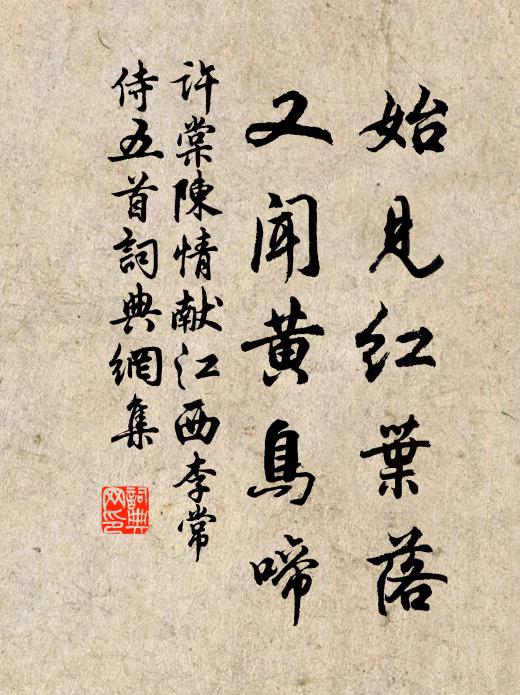 始見红葉落
又聞黄鳥啼
許棠陳情献江西李常
侍五首詞典網集
詞典网印